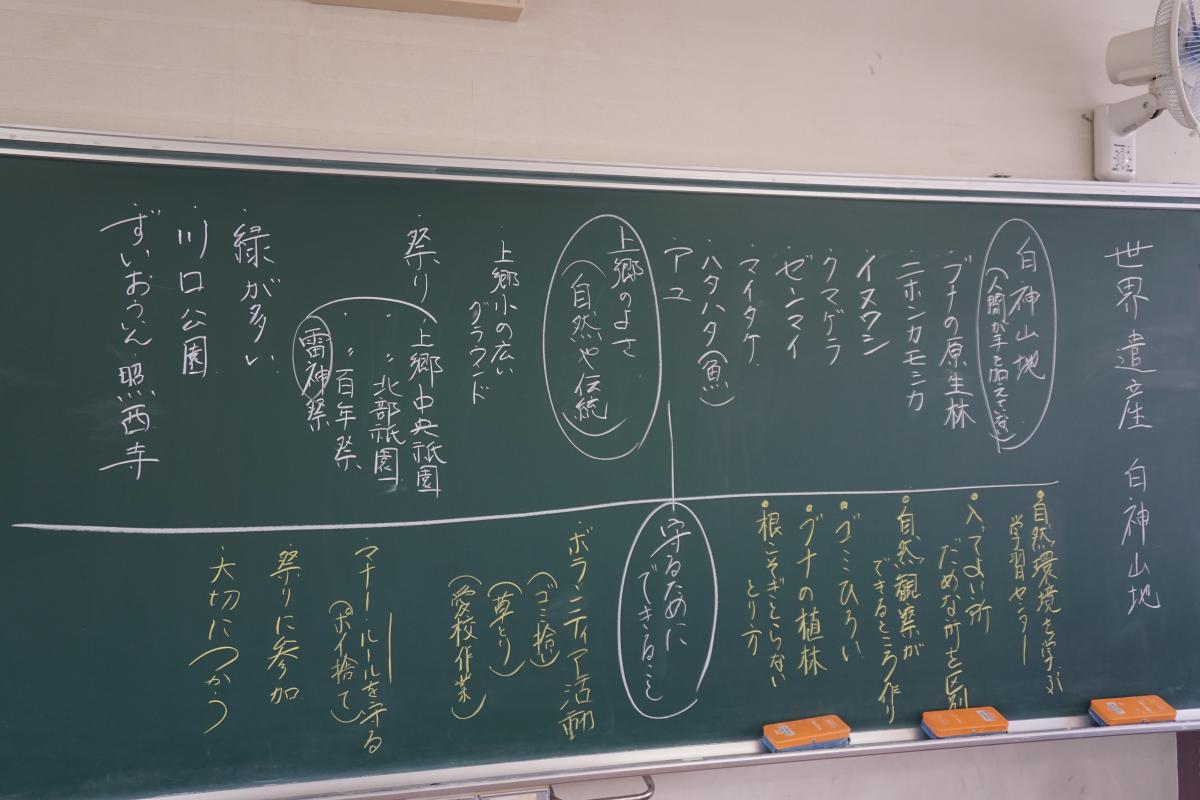 世界遺産 白神山地
白神山地
(人間が手を加えていない)
ブナの原生林
ニホンカモシカ
イヌワシ
クマゲラ
ゼンマイ
マイタケ
ハタハタ(魚)
アユ
自然環境を学ぶ
学習センター
入ってよい所
だめな所を区別
自然観察が
できるところ作り
ゴミひろい
ブナの植林
根こそぎとらない
とり方
上郷のよさ
(自然や伝統)
上郷小の広い
グラウンド
祭り
上郷中央祇園
〃 北部祇園
〃 百年祭
雷神祭
緑が多い
川口公園
ずいおういん 照西寺
守るために
できること
ボランティア活動
(ゴミ拾い)
(草とり)
(愛校作業)
マナー・ルールを守る
(ポイ捨て)
祭りに参加
大切につかう